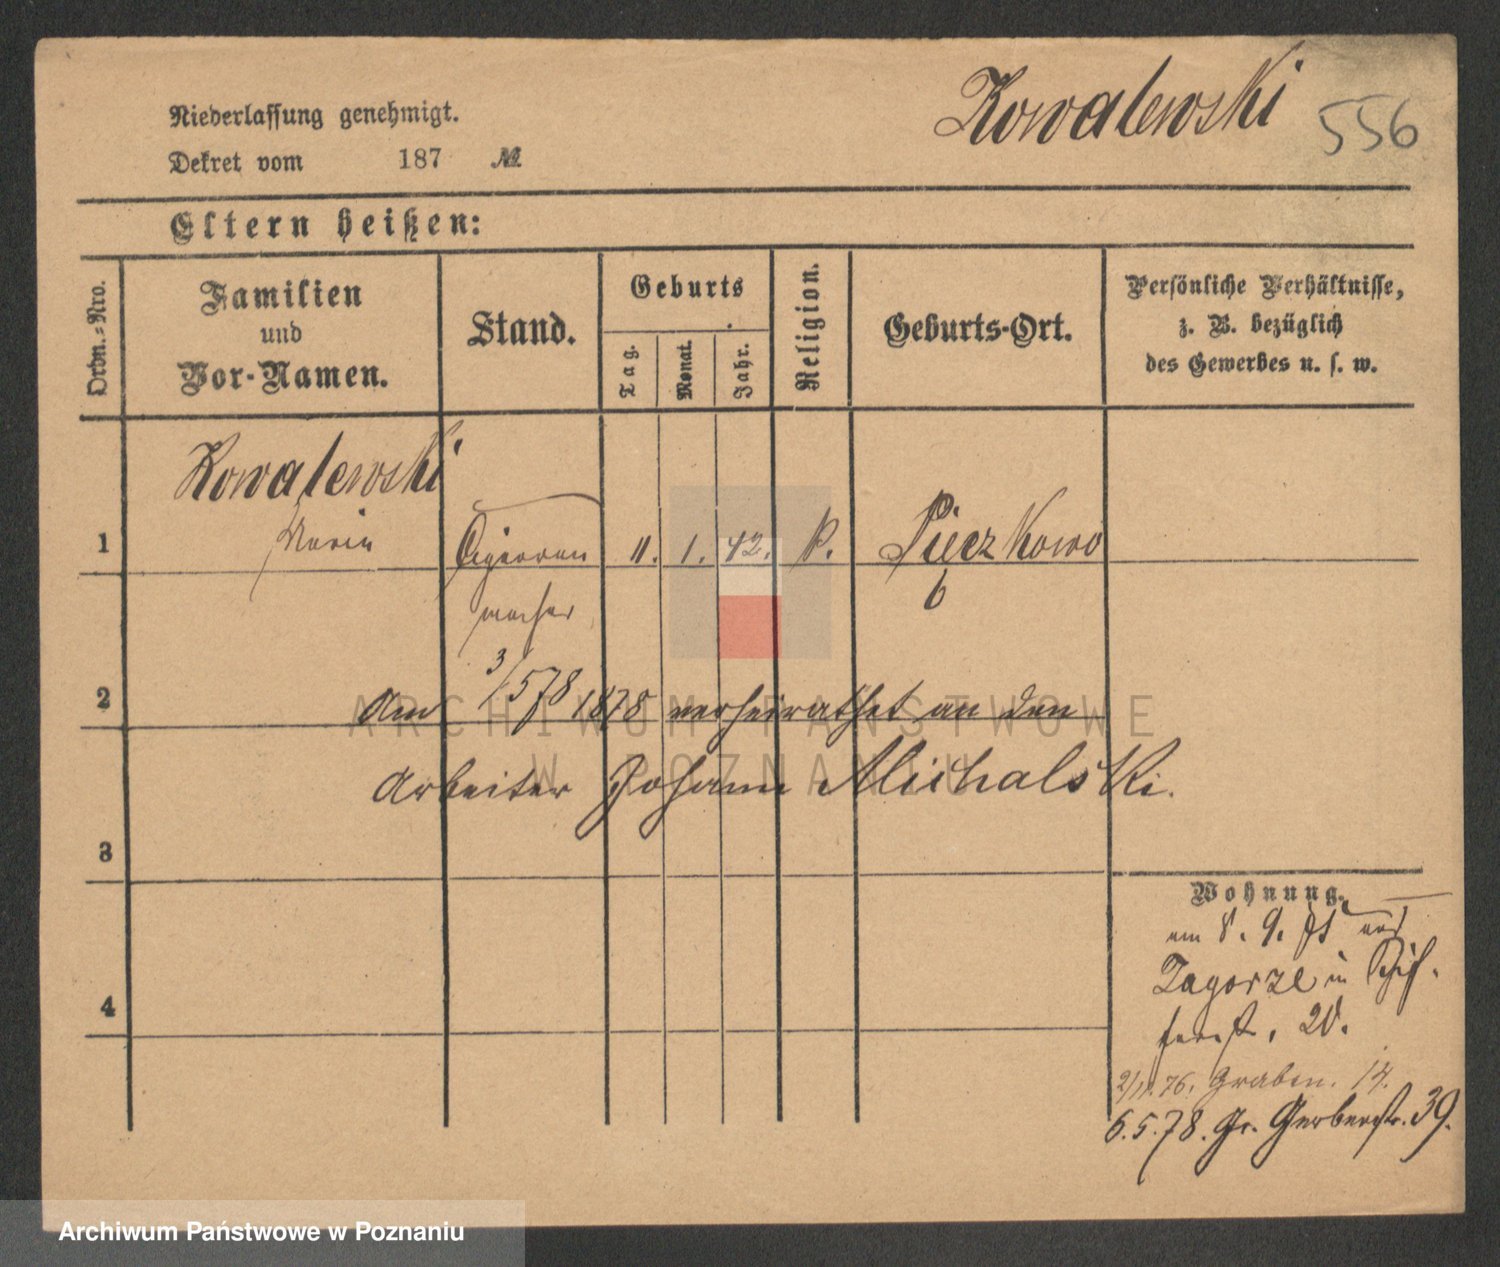 Kowalewski 556
Niederlassung genehmigt.
Dekret vom 187 №
Eltern heißen:
Ordn.-Nro.
Familien
und
Vor-Namen.
Stand.
Geburts
Tag.
Monat.
Jahr.
Religion.
Geburts-Ort.
Persönliche Verhältnisse,
z. B. bezüglich
des Gewerbes u. s. w.
Kowalewski
1 Maria Cigarren 11. 1. 42. k. Pieczkowo
macher 6
2 Am 3/5 78 1878 verheirathet an den
Arbeiter Johann Michalski.
3
4
Wohnung.
am 8. 9.
Zagorze in
20.
2/11. 76. Graben. 14.
6.5.78. Gr. Gerberstr. 39.
ARCHIWUM PAŃSTWOWE
W POZNANIU
Archiwum Państwowe w Poznaniu